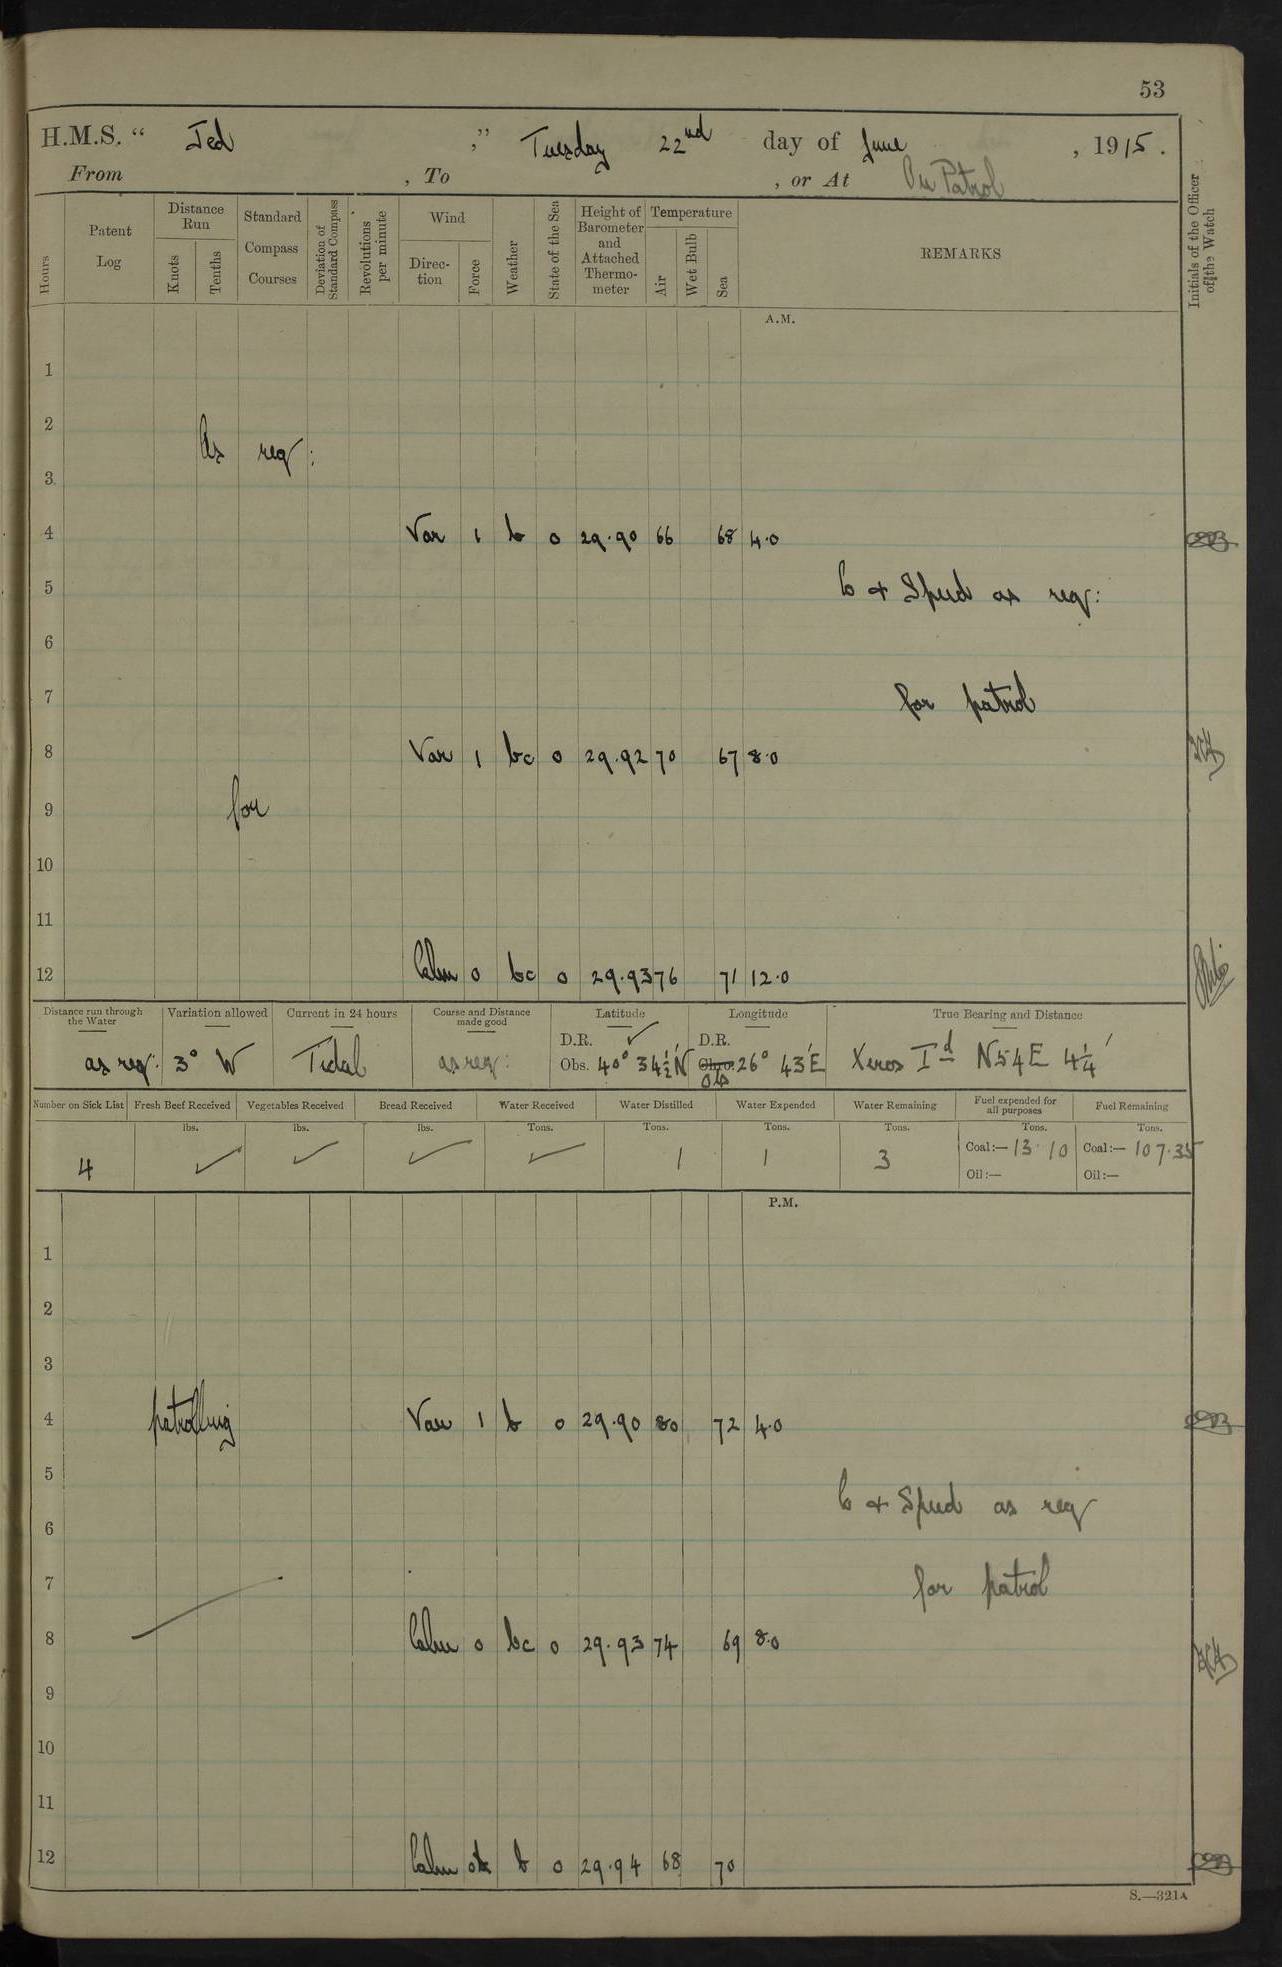 53
H.M.S. “ Jed ,” Tuesday 22nd day of June , 1915.
From , To , or At On Patrol
Hours Patent Log Distance Run Knots Tenths Standard Compass Courses Deviation of Standard Compass Revolutions per minute Wind Direction Force Weather State of the Sea Height of Barometer and Attached Thermometer Temperature Air Wet Bulb Sea REMARKS Initials of the Officer of the Watch
A.M.
1
2
As req:
3
4 Var 1 b 0 29.90 66 68 4.0
5 C + Speed as req:
6
7 for patrol
8 Var 1 bc 0 29.92 70 67 8.0
9 for
10
11
12 Calm 0 bc 0 29.93 76 71 12.0
Distance run through the Water Variation allowed Current in 24 hours Course and Distance made good Latitude Longitude True Bearing and Distance
D.R. ✓ D.R.
as req: 3° W Tidal as req: Obs. 40° 34½' N Chro. Obs 26° 43' E Xeros Id N54E 4¼'
Number on Sick List Fresh Beef Received Vegetables Received Bread Received Water Received Water Distilled Water Expended Water Remaining Fuel expended for all purposes Fuel Remaining
lbs. lbs. lbs. Tons. Tons. Tons. Tons. Tons. Tons.
4 ✓ ✓ ✓ ✓ 1 1 3 Coal:— 13.10 Coal:— 107.35
Oil:— Oil:—
P.M.
1
2
3
4 patrolling Var 1 b 0 29.90 80 72 4.0
5 C + Speed as req
6
7 for patrol
8 Calm 0 bc 0 29.93 74 69 8.0
9
10
11
12 Calm 0 b 0 29.94 68 70
S.—321A